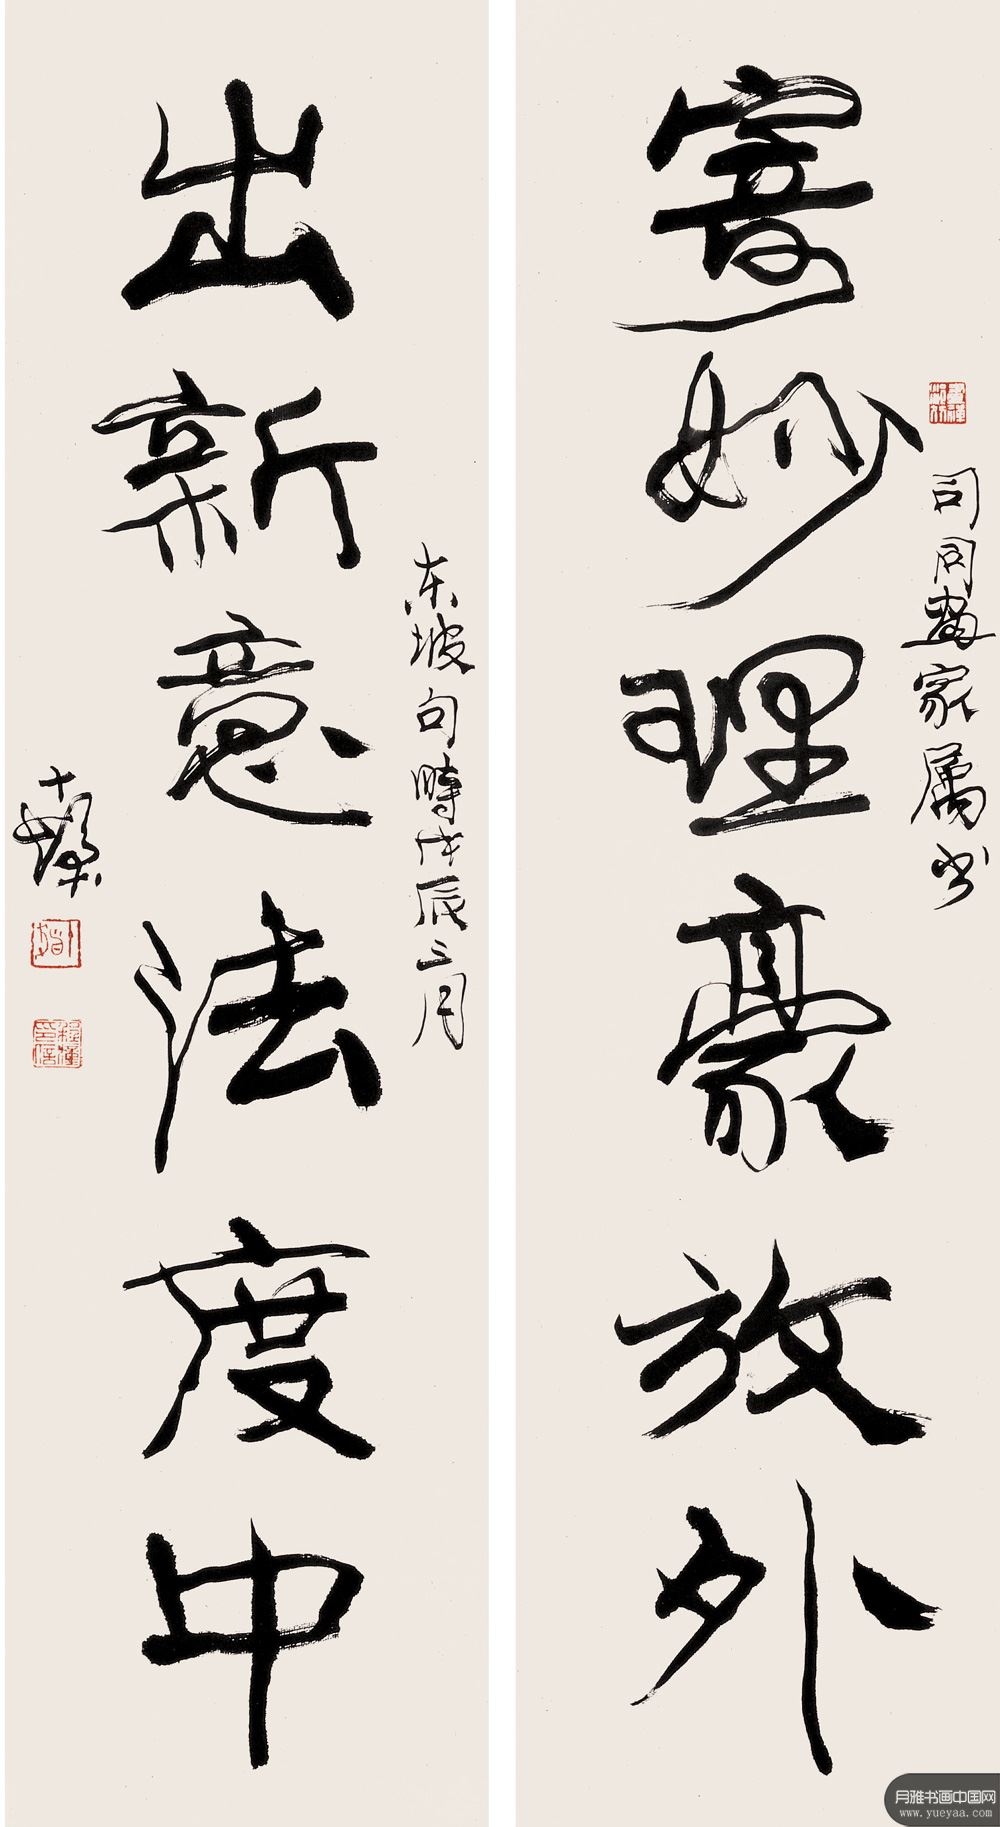 寄妙理豪放外
司同画家属书
出新意法度中
东坡句时戊辰三月
月雅书画中国网
www.yueyaa.com